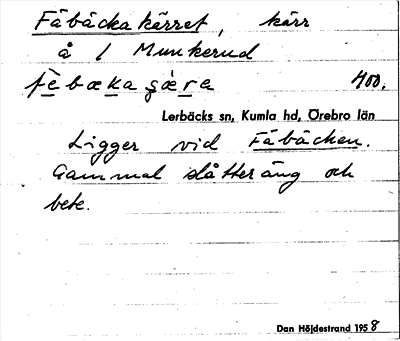 Fäbäckakärret, kärr
å 1 Munkerud
fèbækaçæ̀ra 400.
Lerbäcks sn, Kumla hd, Örebro län
Ligger vid Fäbäcken.
Gammal slåtteräng och
bete.
Dan Höjdestrand 1958